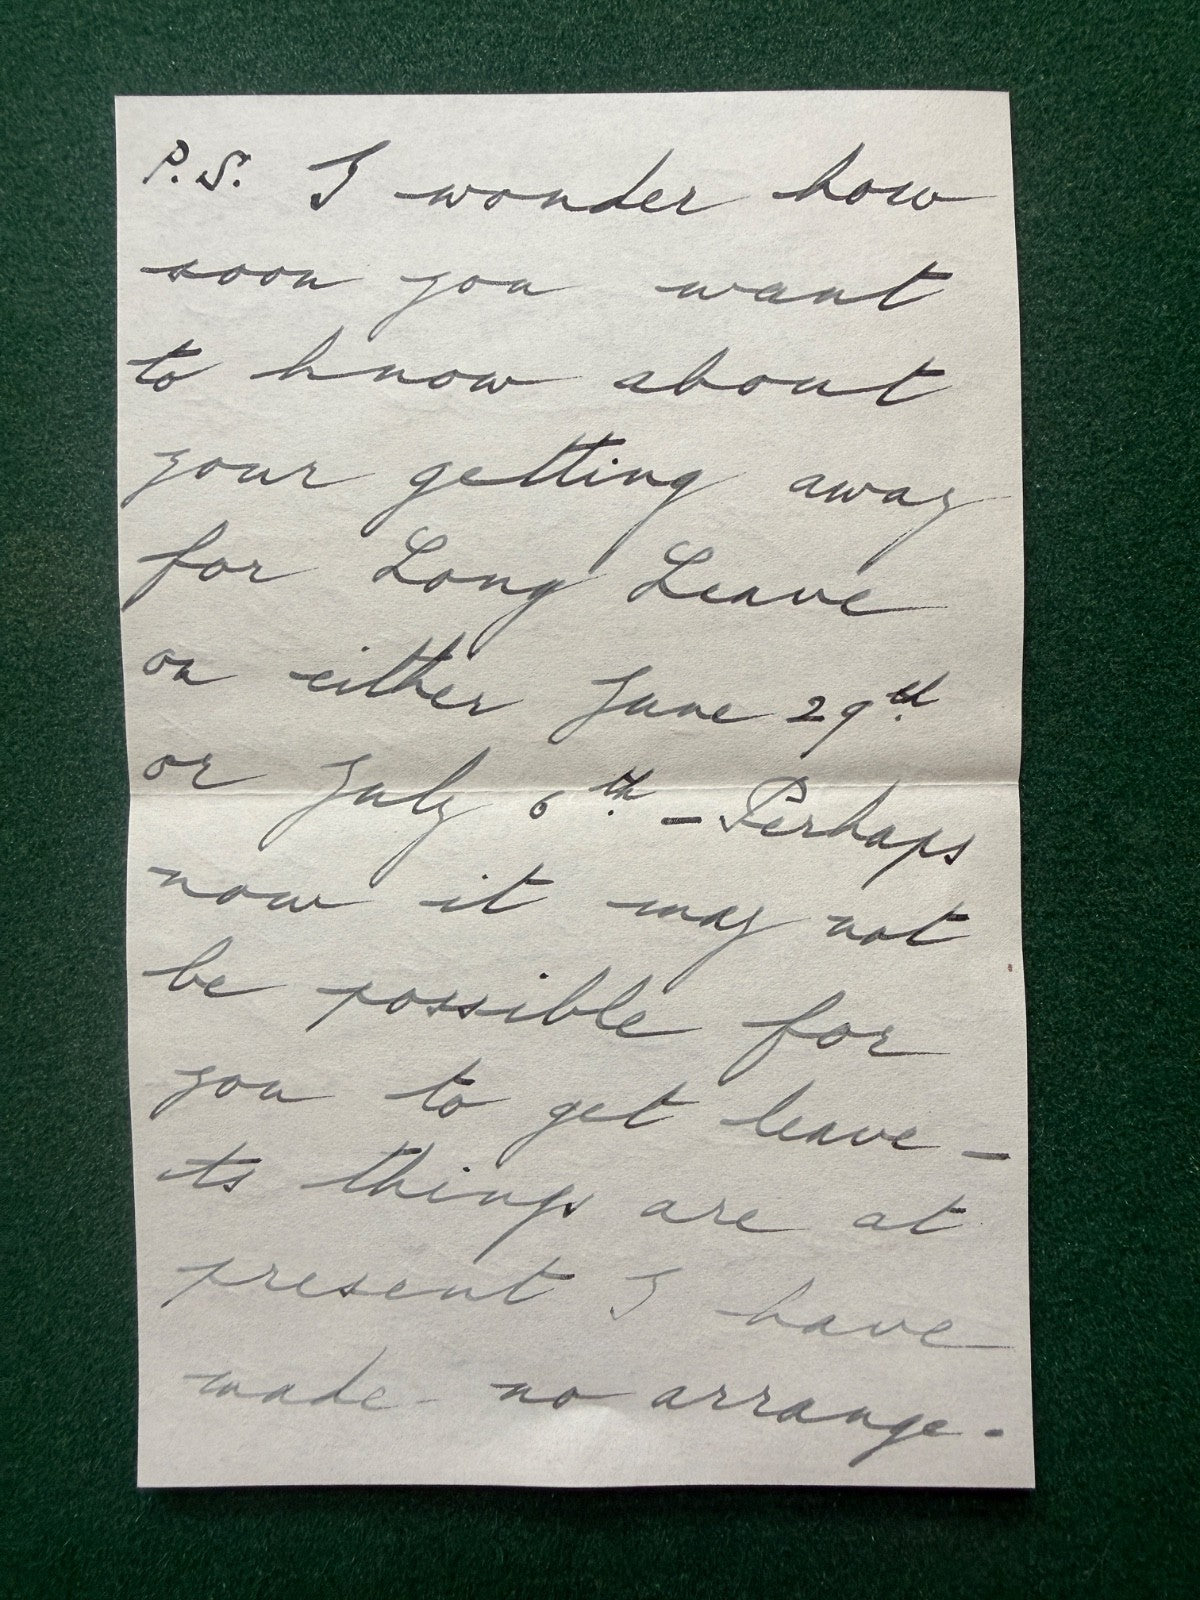 P.S. I wonder how
soon you want
to know about
your getting away
for Long Leave
on either June 29th
or July 6th – Perhaps
now it may not
be possible for
you to get leave –
As things are at
present I have
made no arrange-